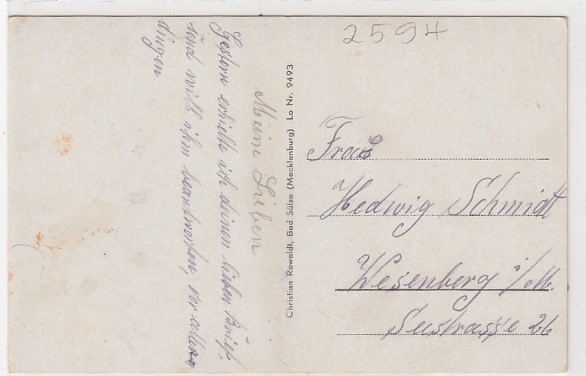 2594
Meine Lieben
Gestern erhielt ich deinen lieben Brief,
und will ihm beantworten, vor allen
dingen
Christian Rowoldt, Bad Sülze (Mecklenburg) Lo Nr. 9493
Frau
Hedwig Schmidt
Wesenberg i/M.
Seestrasse 26